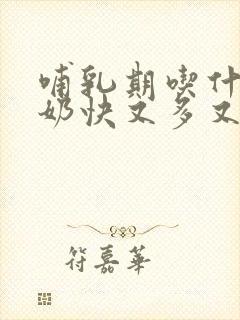 哺乳期喫什
奶快又多又
符嘉華